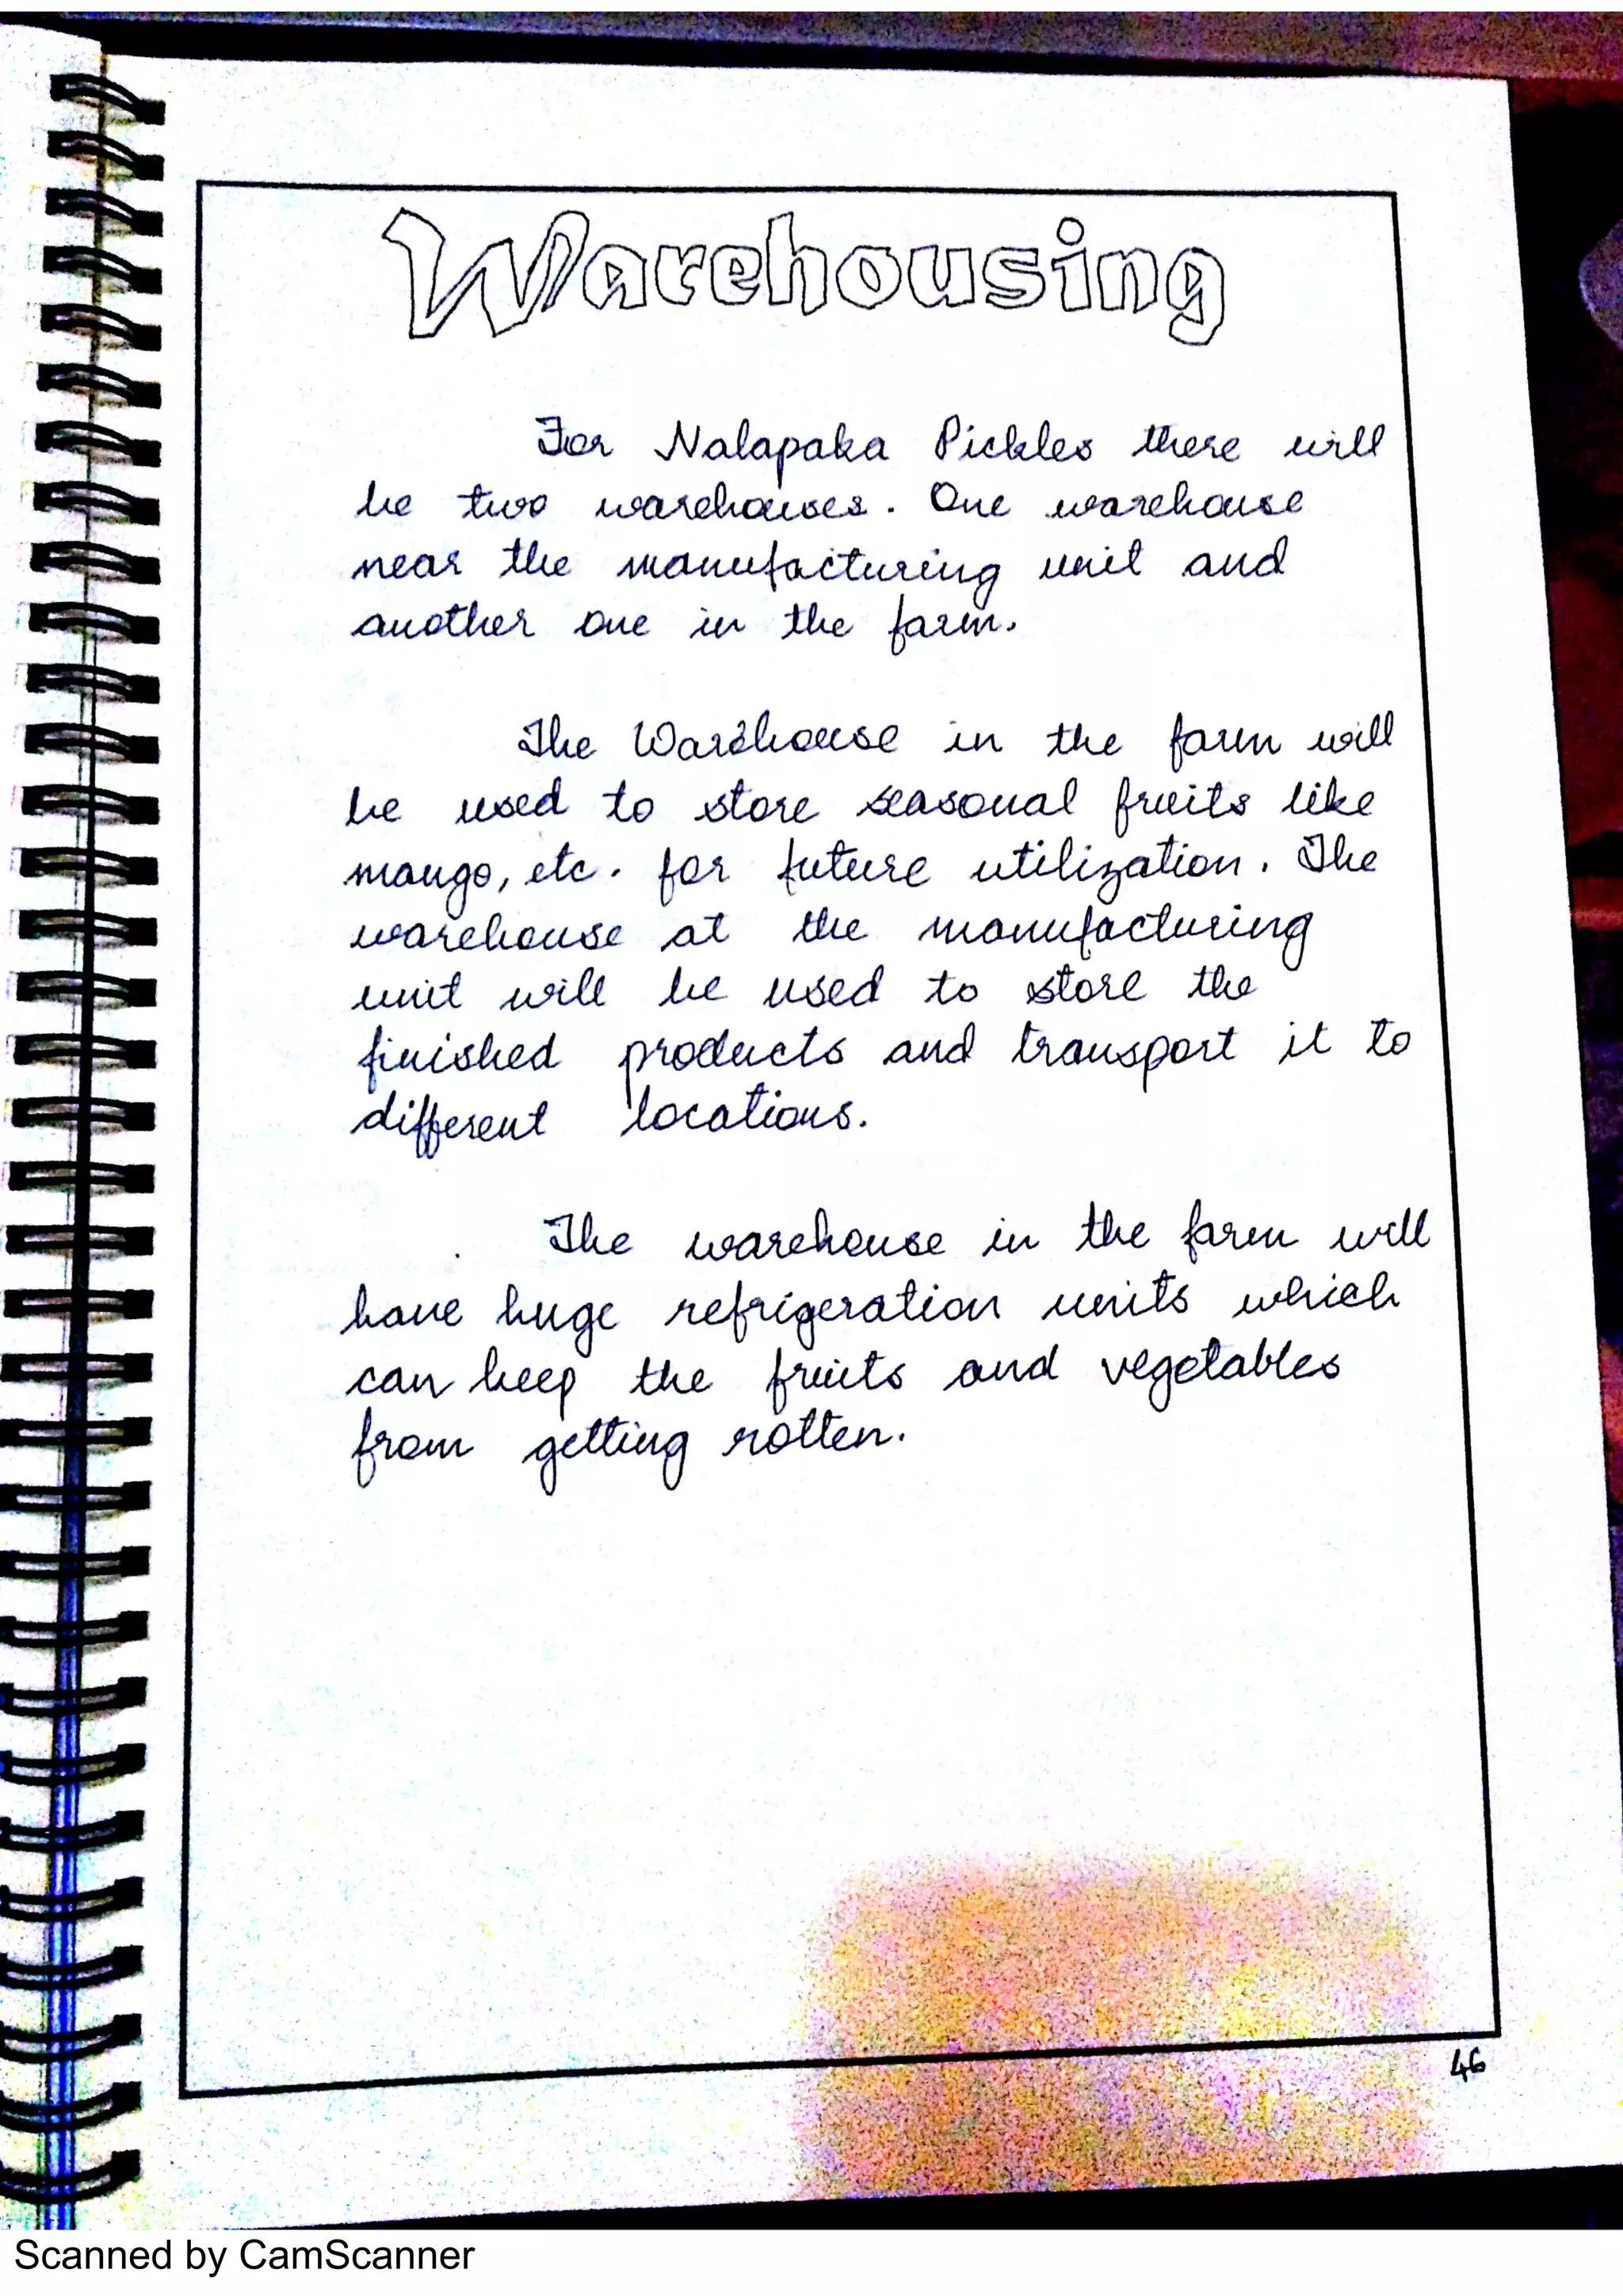 Warehousing
For Nalapaka Pickles there will
be two warehouses. One warehouse
near the manufacturing unit and
another one in the farm.
The Warehouse in the farm will
be used to store seasonal fruits like
mango, etc. for future utilization. The
warehouse at the manufacturing
unit will be used to store the
finished products and transport it to
different locations.
The warehouse in the farm will
have huge refrigeration units which
can keep the fruits and vegetables
from getting rotten.
46
Scanned by CamScanner